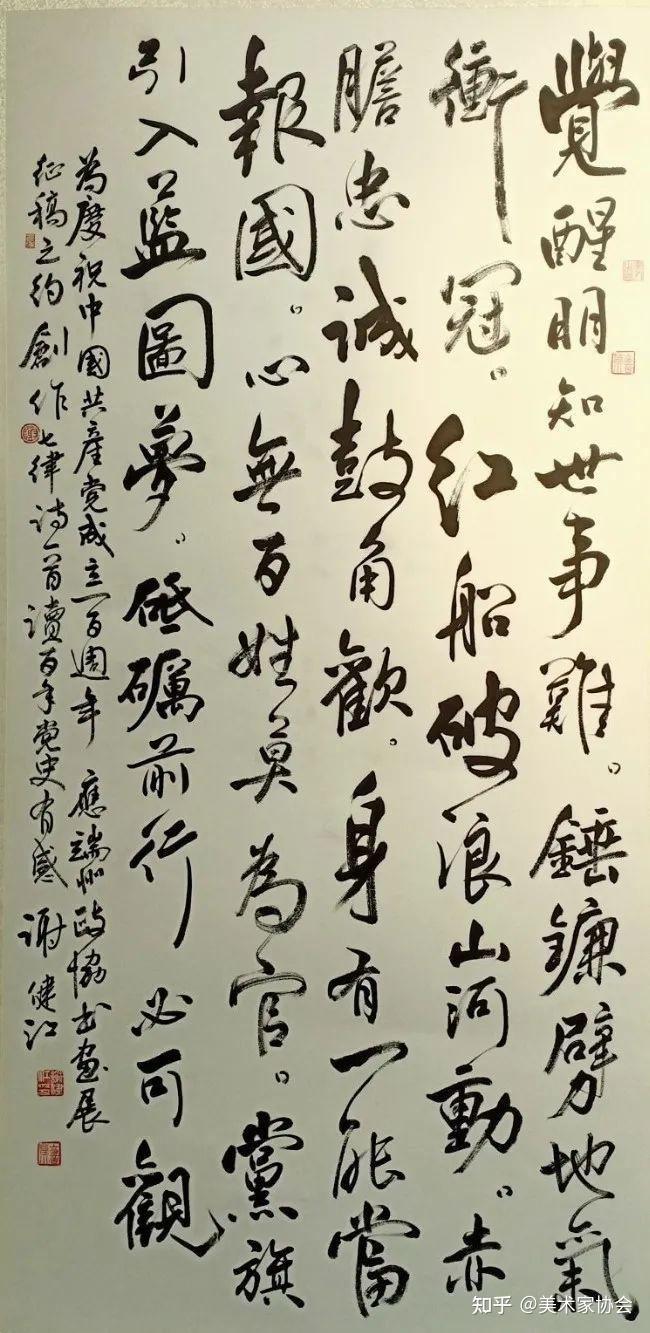 覺醒明知世事難。錘鐮劈地氣
衝冠。红船破浪山河動。赤
膽忠誠鼓角歡。身有一能當
報國。心無百姓莫為官。黨旗
引入藍圖夢。砥礪前行必可觀
為慶祝中國共產党成立一百週年 應端州政協书畫展
征稿之约創作七律诗一首讀百年党史有感 谢健江
知乎 @美术家协会